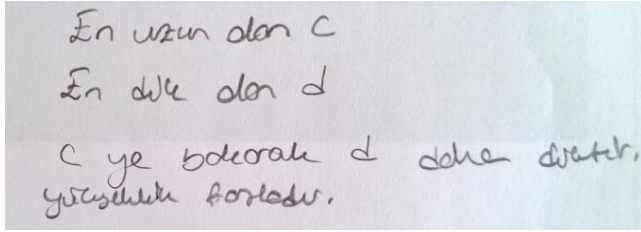 En uzun olan C
En dik olan d
C ye bakarak d daha diktir,
yükseklik fazladır.